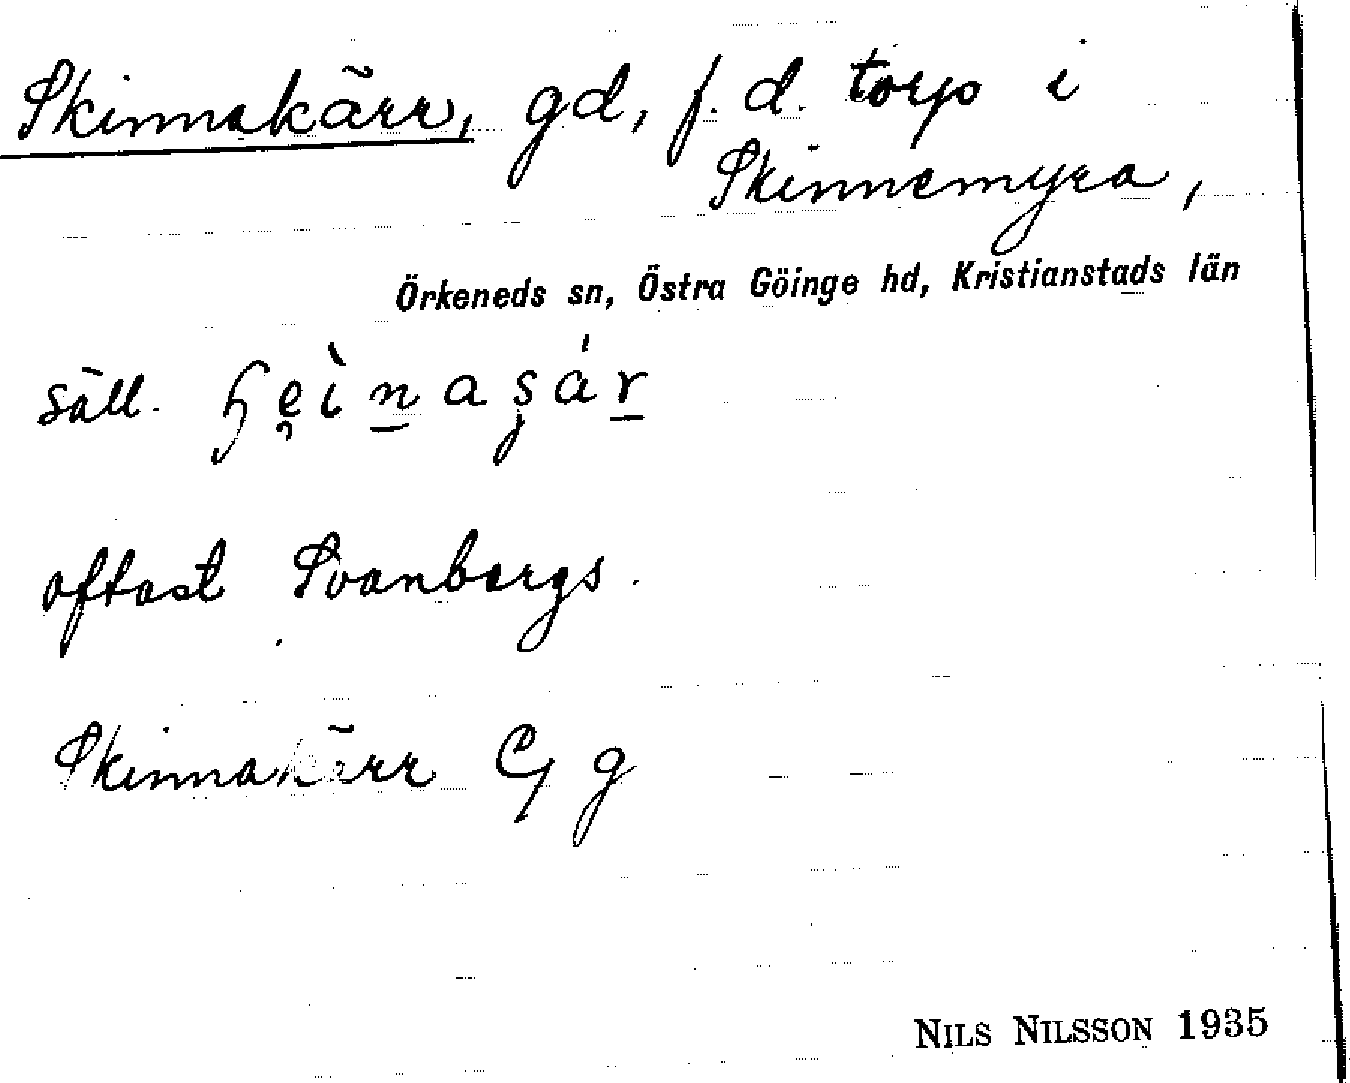 Skinnakärr, gd, f. d. torp i
Skinnemyra,
Örkeneds sn, Östra Göinge hd, Kristianstads län
säll.
oftast Svanbergs.
Skinnakärr Cg
NILS NILSSON 1935